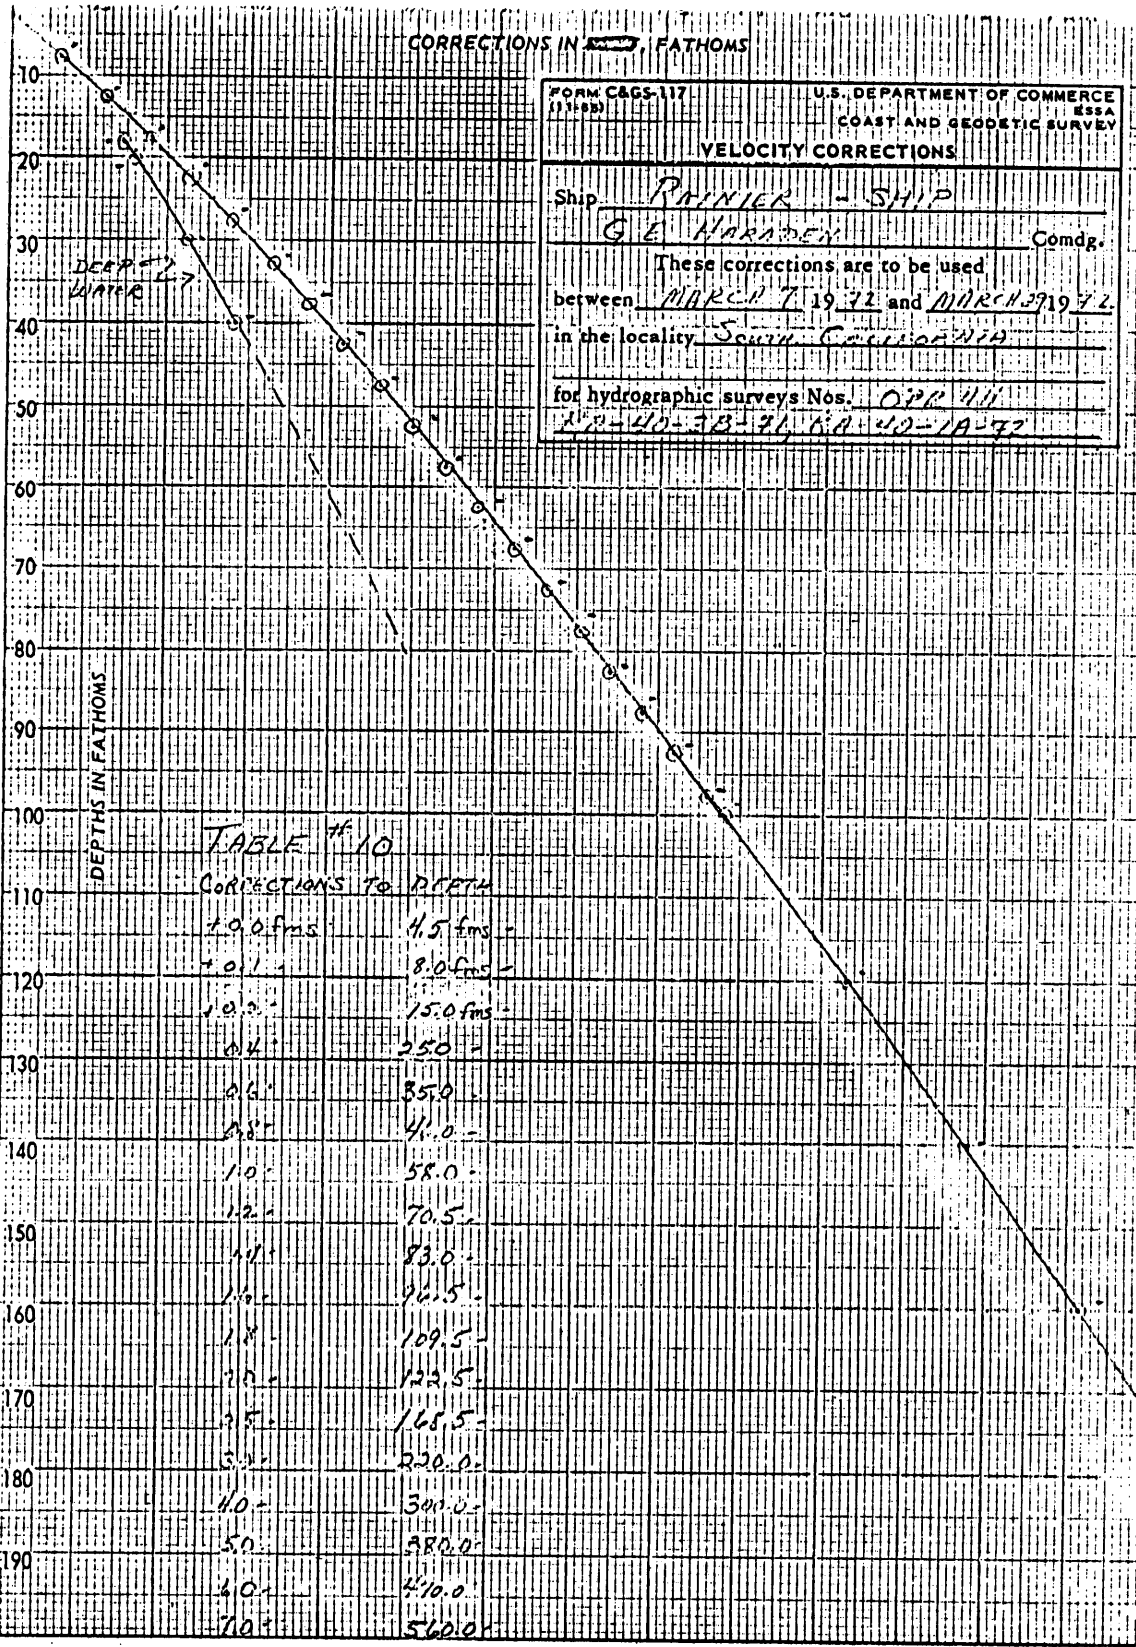 CORRECTIONS IN FATHOMS
FORM C&GS-117
U.S. DEPARTMENT OF COMMERCE
ESSA
COAST AND GEODETIC SURVEY
VELOCITY CORRECTIONS
Ship RAINIER - SHIP
G E HARADEN Comdg.
These corrections are to be used
between MARCH 7 1972 and MARCH 29 1972
in the locality SOUTH CALIFORNIA
for hydrographic surveys Nos. OPR 411
DEEP
WATER
DEPTHS IN FATHOMS
10
20
30
40
50
60
70
80
90
100
110
120
130
140
150
160
170
180
190
TABLE # 10
CORRECTIONS TO DEPTH
+0.0 fms 4.5 fms
+0.1 8.0 fms
15.0 fms
0.4 25.0
0.6 35.0
0.8
1.0 58.0
1.2 70.5
1.4 83.0
1.6 96.5
1.8 109.5
2.0 122.5
2.5 168.5
3.0 220.0
4.0 300.0
5.0 380.0
6.0 470.0
7.0 560.0